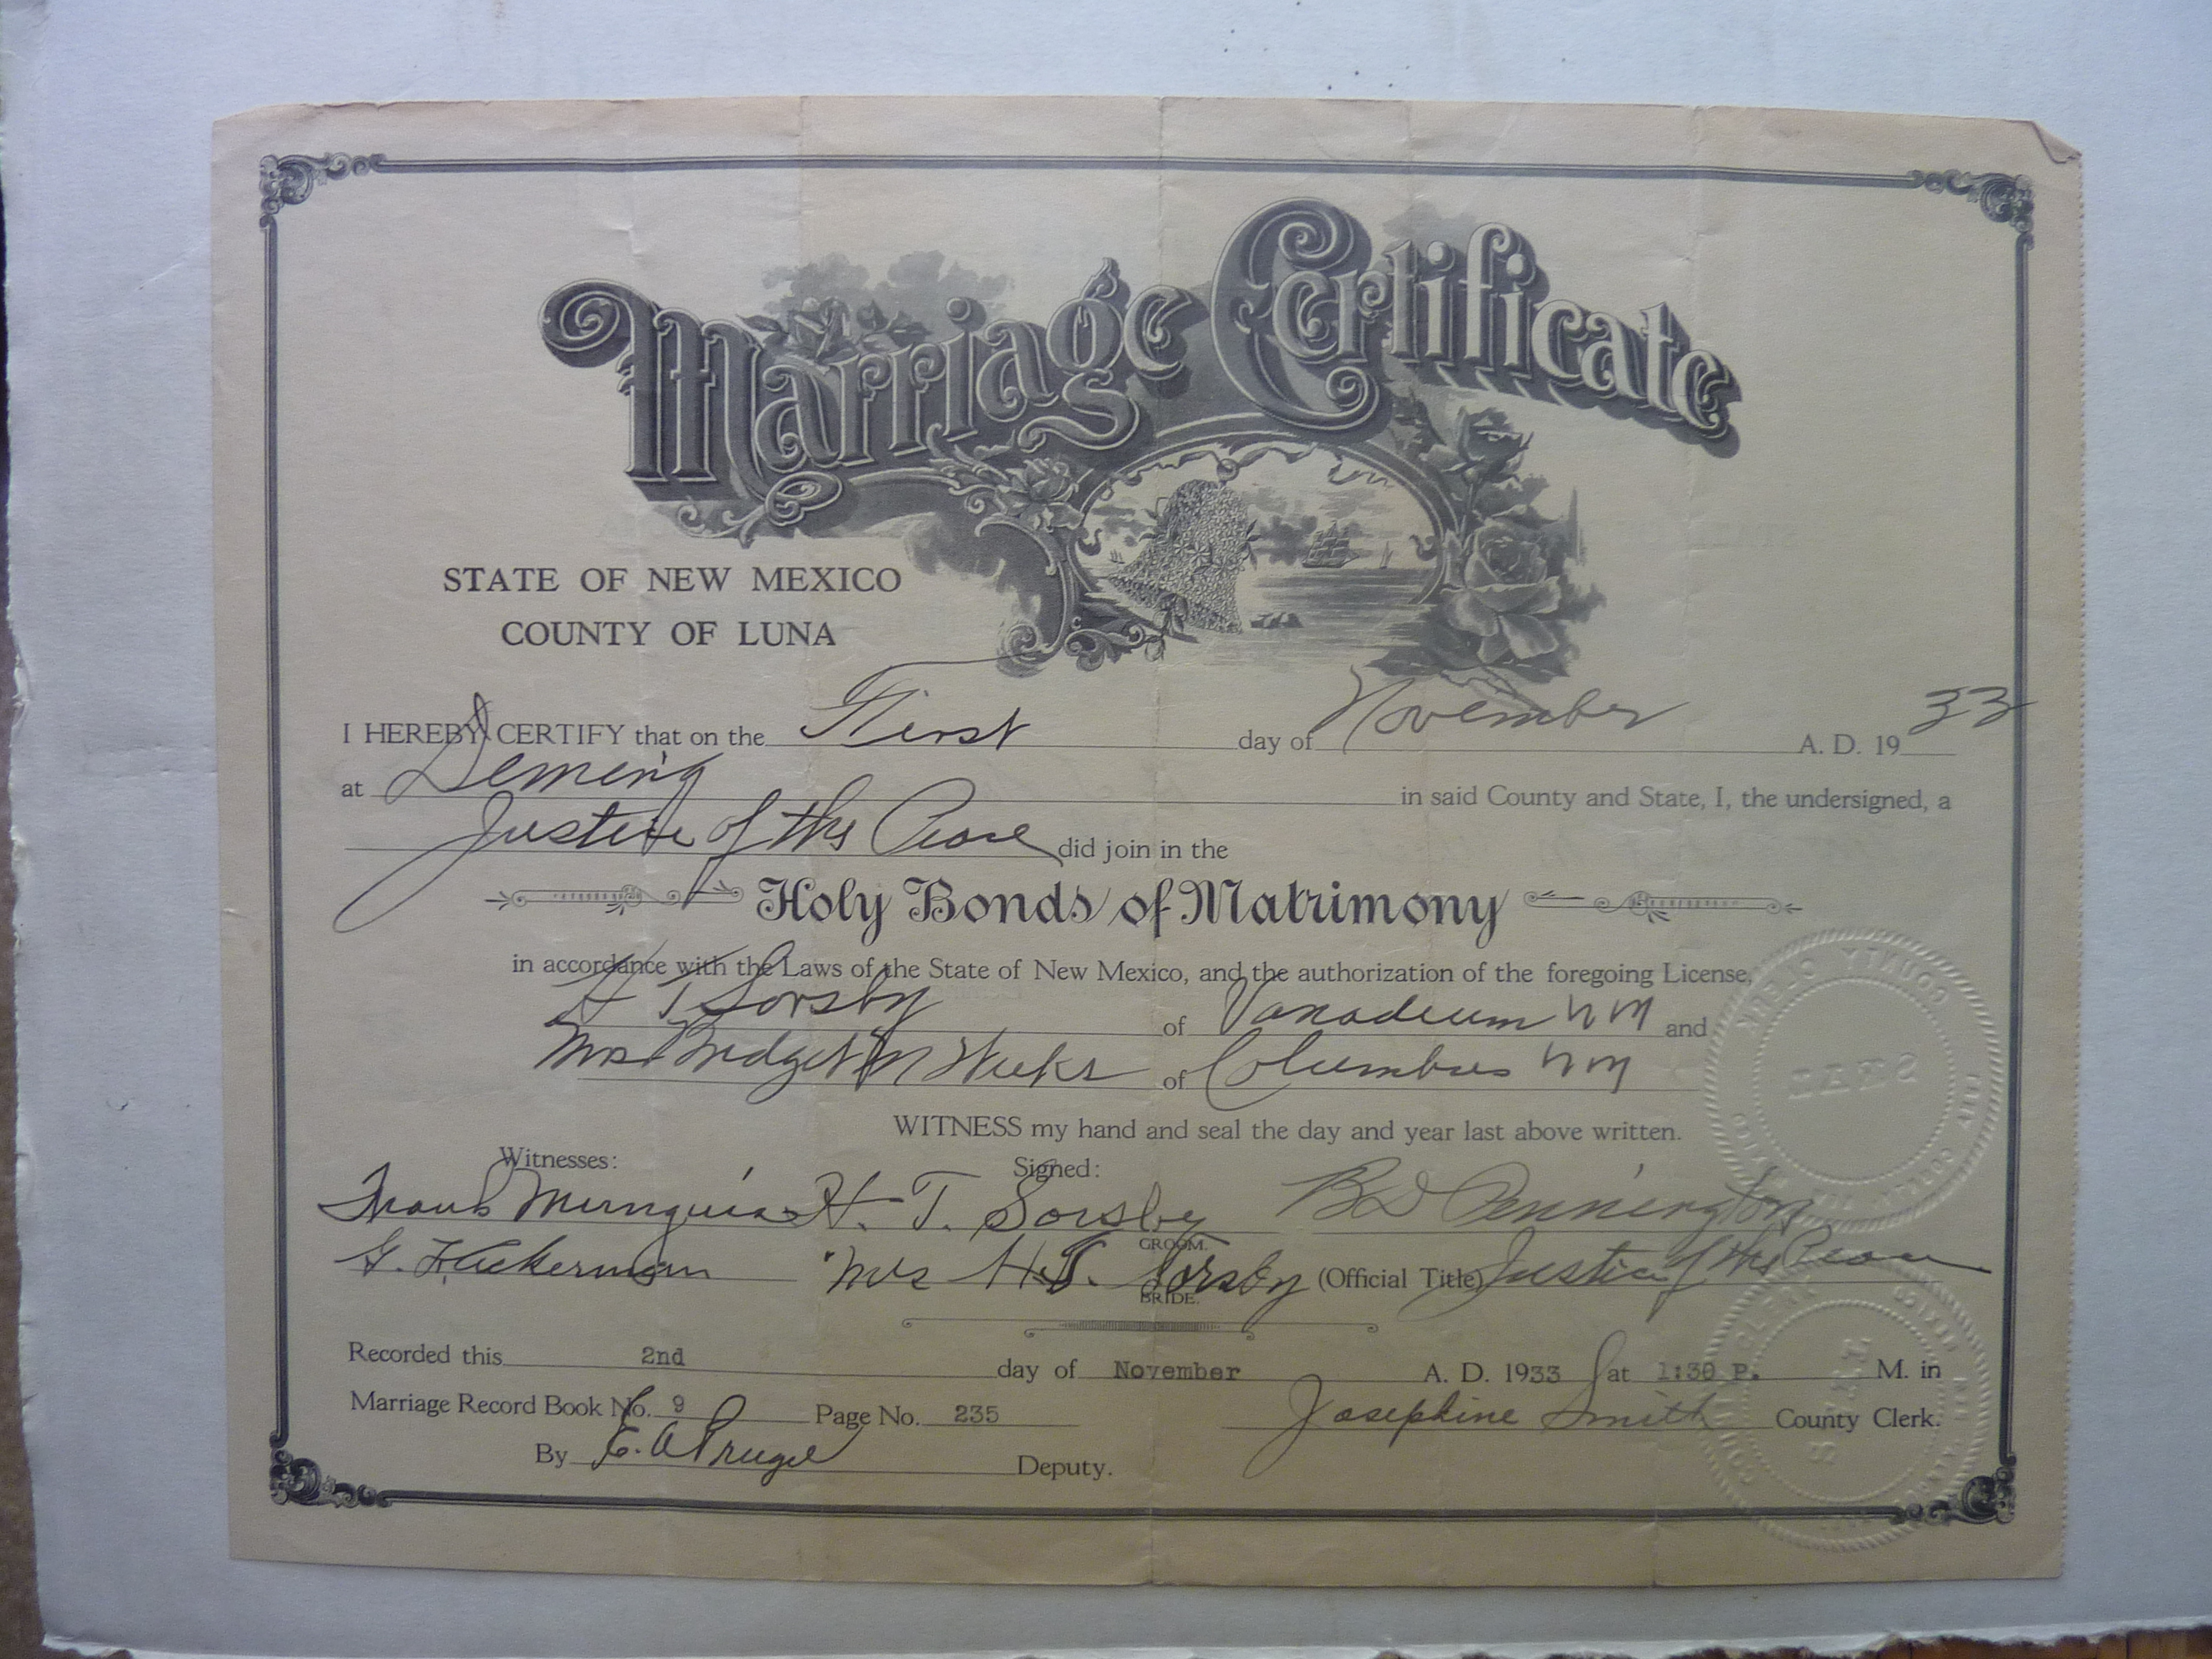 Marriage Certificate
STATE OF NEW MEXICO
COUNTY OF LUNA
I HEREBY CERTIFY that on the First day of November A. D. 19 33
at Deming in said County and State, I, the undersigned, a
Justice of the Peace did join in the
Holy Bonds of Matrimony
in accordance with the Laws of the State of New Mexico, and the authorization of the foregoing License,
H T Sorsby of Vanadium N M and
Mrs Bridget M Weeks of Columbus N M
WITNESS my hand and seal the day and year last above written.
Witnesses: Signed:
Frank Munguia H. T. Sorsby B D Pennington
GROOM.
G. F. Ackerman Mrs H. T. Sorsby (Official Title) Justice of the Peace
BRIDE.
Recorded this 2nd day of November A. D. 1933 at 1:30 P. M. in
Marriage Record Book No. 9 Page No. 235 Josephine Smith County Clerk.
By Deputy.
COUNTY CLERK
SEAL
SEAL